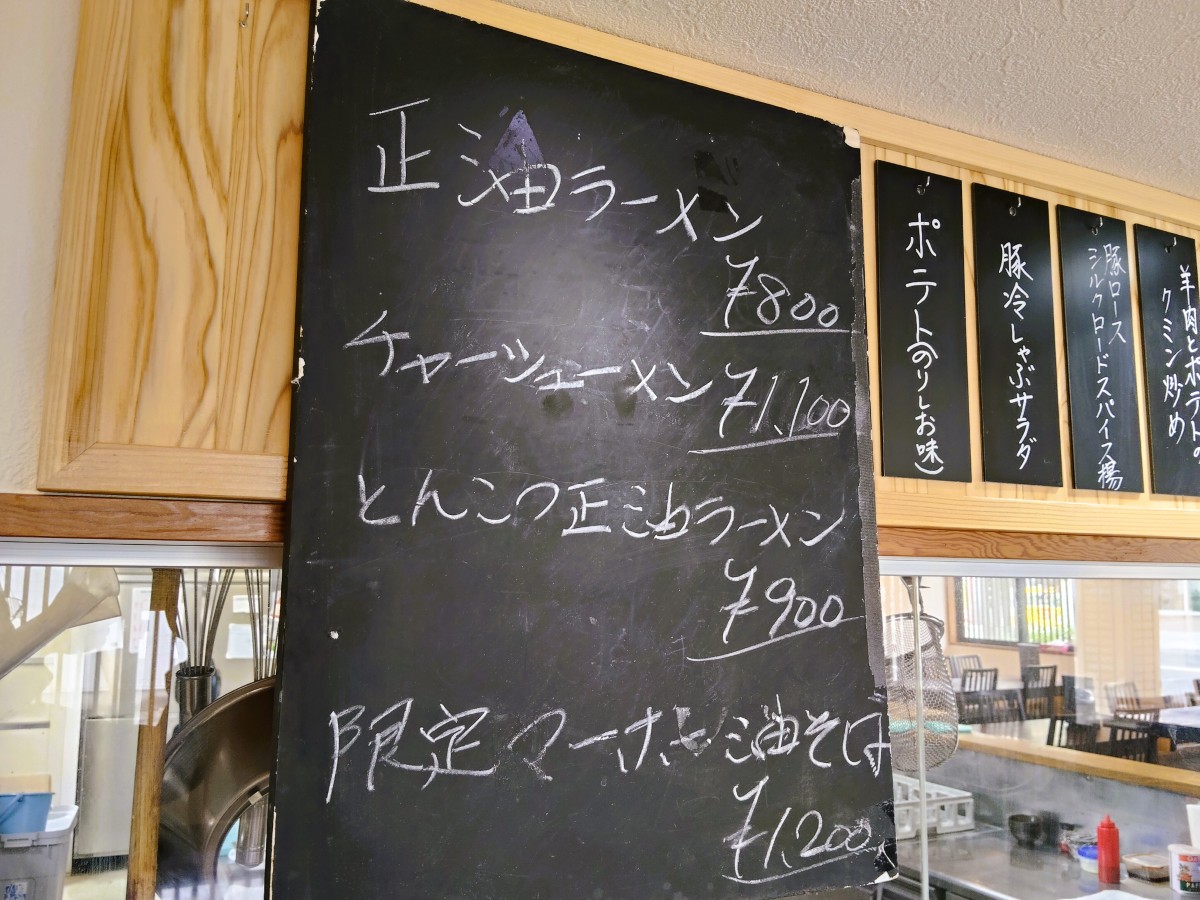 正油ラーメン
¥800
チャーシューメン ¥1,100
とんこつ正油ラーメン
¥900
限定 マーボー油そば
¥1,200
ポテト(のりしお味)
豚冷しゃぶサラダ
豚ロース
シルクロードスパイス揚
羊肉とポテトの
クミン炒め